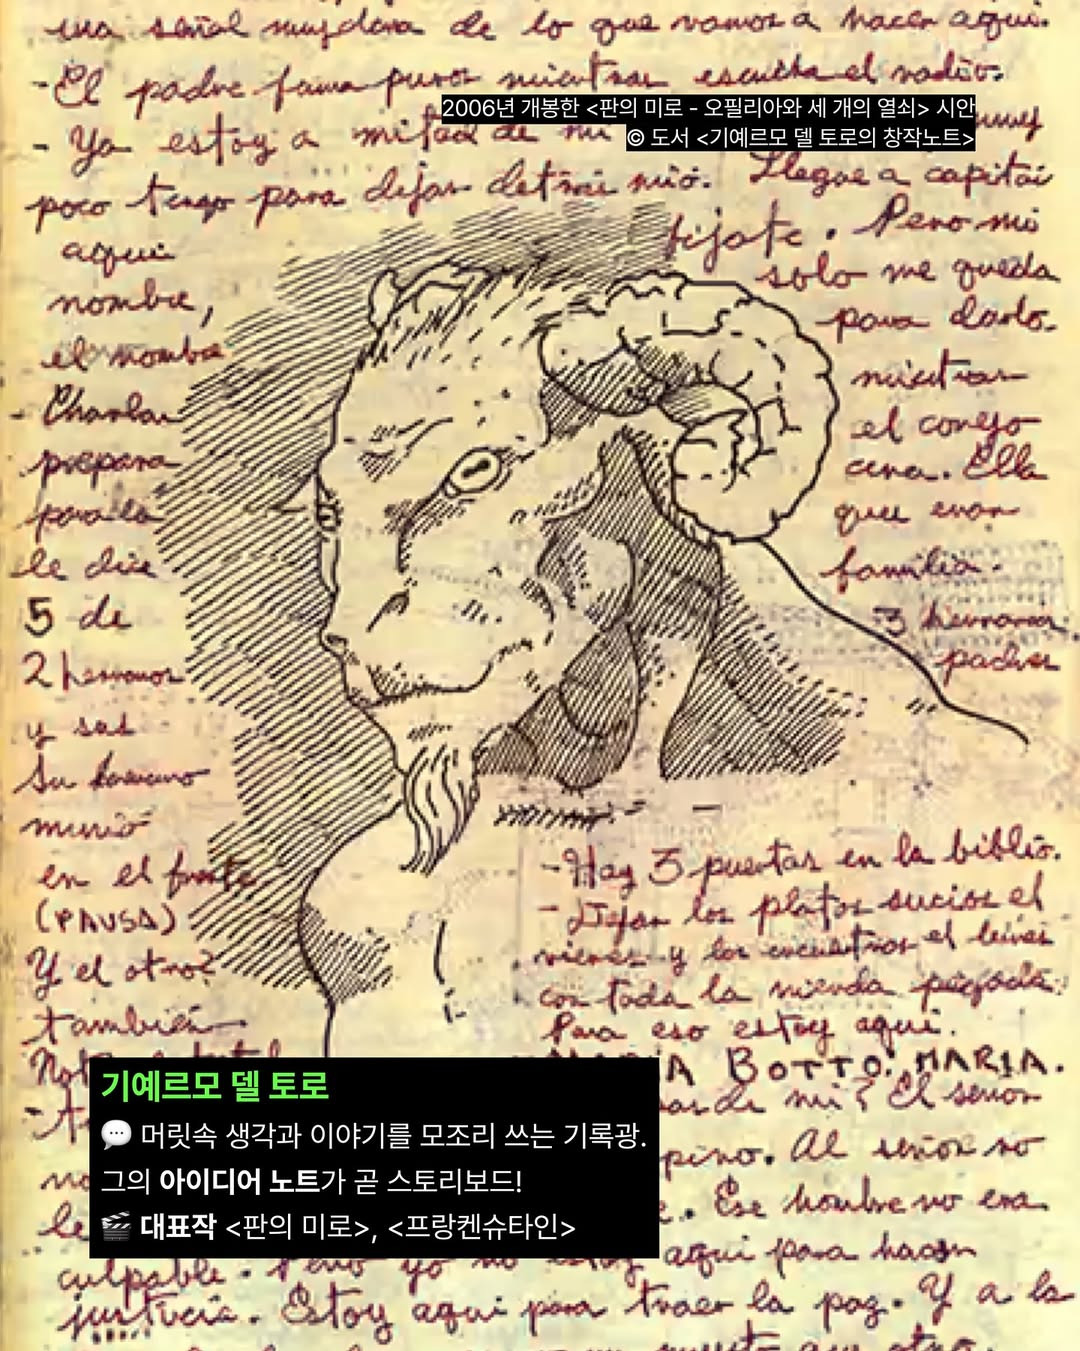 una señal muy clara de lo que vamos a hacer aqui.
- El padre fuma puros mientras escucha el radio.
2006년 개봉한 <판의 미로 - 오필리아와 세 개의 열쇠> 시안
© 도서 <기예르모 델 토로의 창작노트>
- Yo estoy a mitad de mi
poco tengo para dejar detrás mio. Llegue a capitán
aqui
fijate. Pero mi
nombre,
solo me queda
el nombre
para darlo.
- Charlan
mientras
prepara
el conejo
para la
cena. Ella
le dice
que eran
familia.
5 de
3 hermanas
2 hermanos
padres
y sus
su hermano
murió
en el frente
(PAUSA)
Y el otro?
también
- Hay 3 puertas en la biblio.
- Dejan los platos sucios el
viernes y los encuentras el lunes
con toda la mierda pegada.
Para eso estoy aqui.
BOTTO: MARIA.
de mi? El señor
Al señor no
Ese hombre no era
aqui para hacer
culpable. Pero yo no estoy
justicia. Estoy aqui para traer la paz. Y a la
기예르모 델 토로
💬 머릿속 생각과 이야기를 모조리 쓰는 기록광.
그의 아이디어 노트가 곧 스토리보드!
🎬 대표작 <판의 미로>, <프랑켄슈타인>